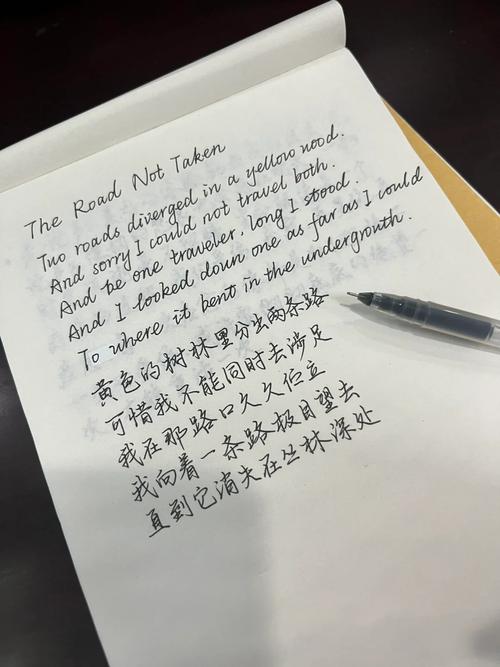 The Road Not Taken
Two roads diverged in a yellow wood.
And sorry I could not travel both.
And be one traveler, long I stood.
And I looked down one as far as I could
To where it bent in the undergrowth.
黄色的树林里分出两条路
可惜我不能同时去涉足
我在那路口久久伫立
我向着一条路极目望去
直到它消失在丛林深处